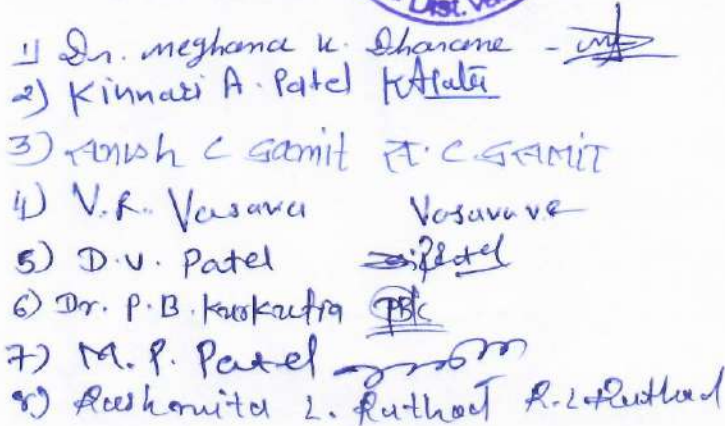 Dist. Va
1) Dr. Meghana K. Dharane -
2) Kinnari A. Patel KAPatel
3) Anish C Gamit A.C.GAMIT
4) V.R. Vasava Vasavave
5) D.V. Patel Patel
6) Dr. P.B. Kurkutia PBK
7) M.P. Patel
8) Rashmita L. Rathod R.L.Rathod